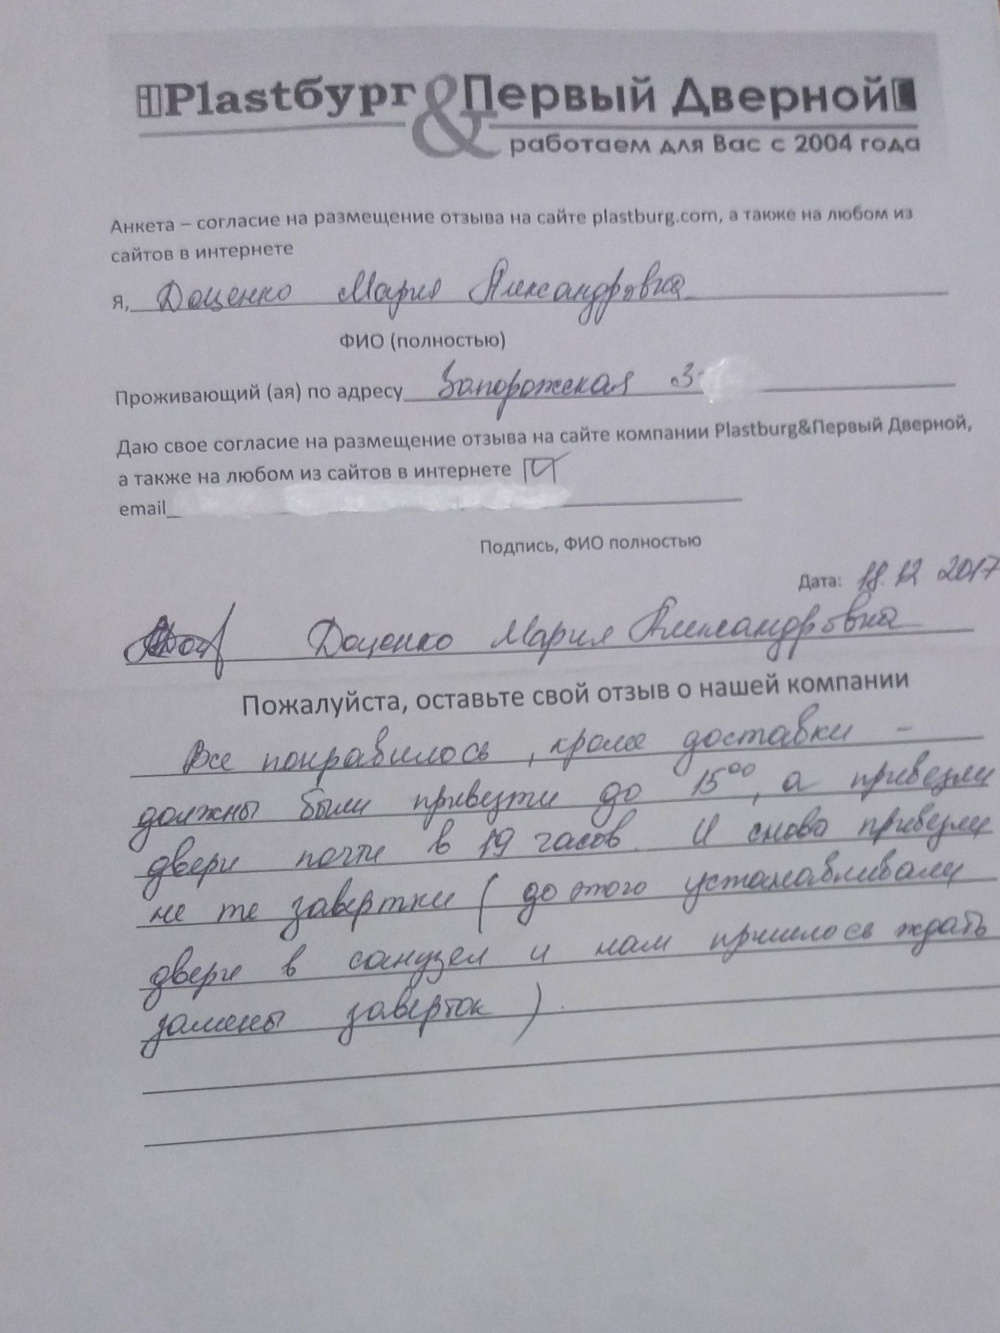 Plastбург & Первый Дверной
работаем для Вас с 2004 года
Анкета – согласие на размещение отзыва на сайте plastburg.com, а также на любом из
сайтов в интернете
я, Доценко Мария Александровна
ФИО (полностью)
Проживающий (ая) по адресу Запорожская 3
Даю свое согласие на размещение отзыва на сайте компании Plastburg&Первый Дверной,
а также на любом из сайтов в интернете
email
Подпись, ФИО полностью
Дата: 18.12 2017
Доценко Мария Александровна
Пожалуйста, оставьте свой отзыв о нашей компании
Все понравилось, кроме доставки –
должны были привезти до 15⁰⁰, а привезли
двери почти в 19 часов. И снова привезли
не те завертки (до этого устанавливали
двери в санузел и нам пришлось ждать
замены заверток).